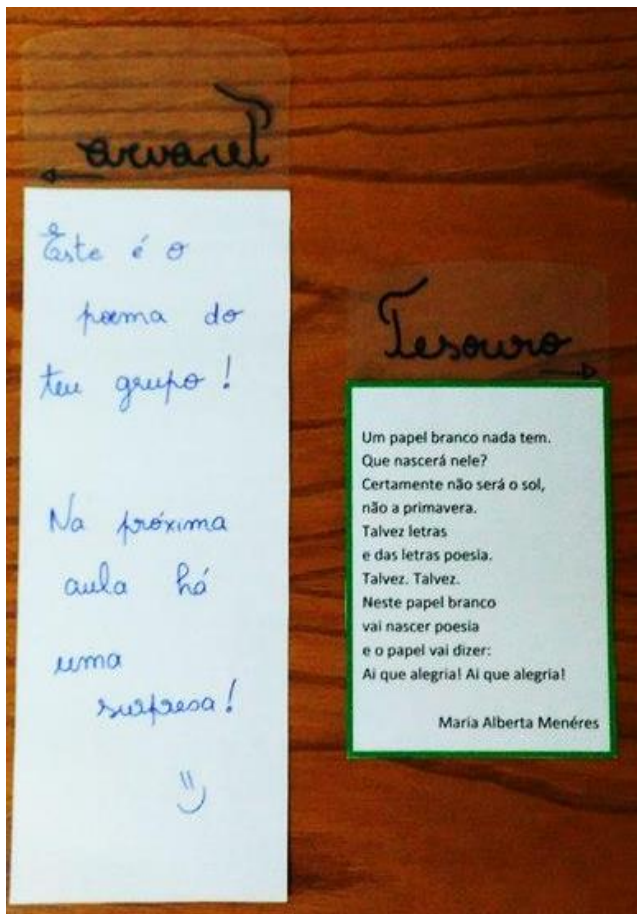 Tesouro
Este é o
poema do
teu grupo!
Na próxima
aula há
uma
surpresa!
Tesouro
Um papel branco nada tem.
Que nascerá nele?
Certamente não será o sol,
não a primavera.
Talvez letras
e das letras poesia.
Talvez. Talvez.
Neste papel branco
vai nascer poesia
e o papel vai dizer:
Ai que alegria! Ai que alegria!
Maria Alberta Menéres